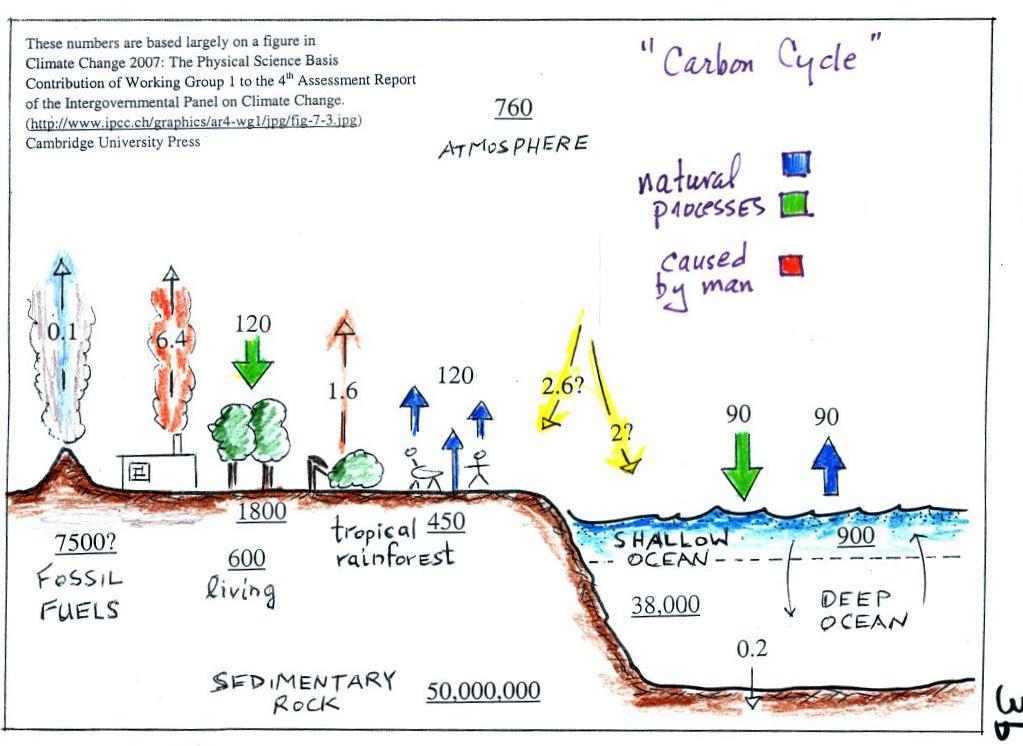 These numbers are based largely on a figure in
Climate Change 2007: The Physical Science Basis
Contribution of Working Group 1 to the 4th Assessment Report
of the Intergovernmental Panel on Climate Change.
(http://www.ipcc.ch/graphics/ar4-wg1/jpg/fig-7-3.jpg)
Cambridge University Press
"Carbon Cycle"
760
ATMOSPHERE
natural
processes
caused
by man
0.1
6.4
120
1.6
120
2.6?
2?
90
90
7500?
FOSSIL
FUELS
1800
600
living
tropical
rainforest
450
SHALLOW
OCEAN
900
38,000
DEEP
OCEAN
0.2
SEDIMENTARY
ROCK
50,000,000